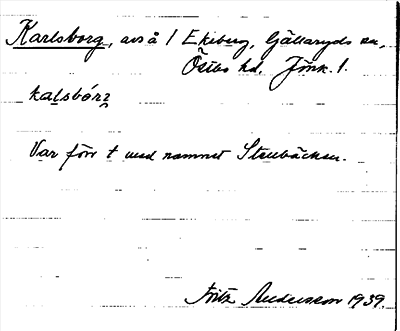 Karlsborg, avs å 1 Ekeberg, Gällaryds sn,
Östbo hd. Jönk. l.
kalsbórȝ
Var förr t med namnet Stenbäcken.
Fritz Andersson 1939.